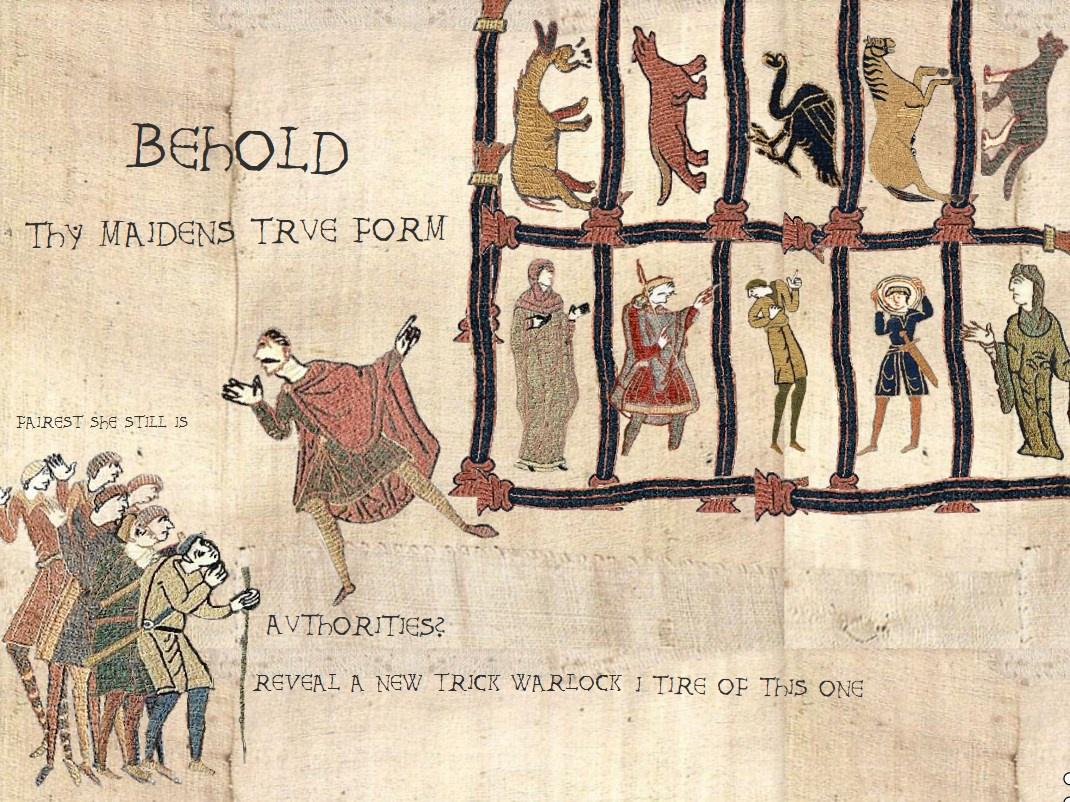 BEhOLD
ThY MAIDENS TRVE FORM
FAIREST ShE STILL IS
AVThORITIES?
REVEAL A NEW TRICK WARLOCK I TIRE OF ThIS ONE